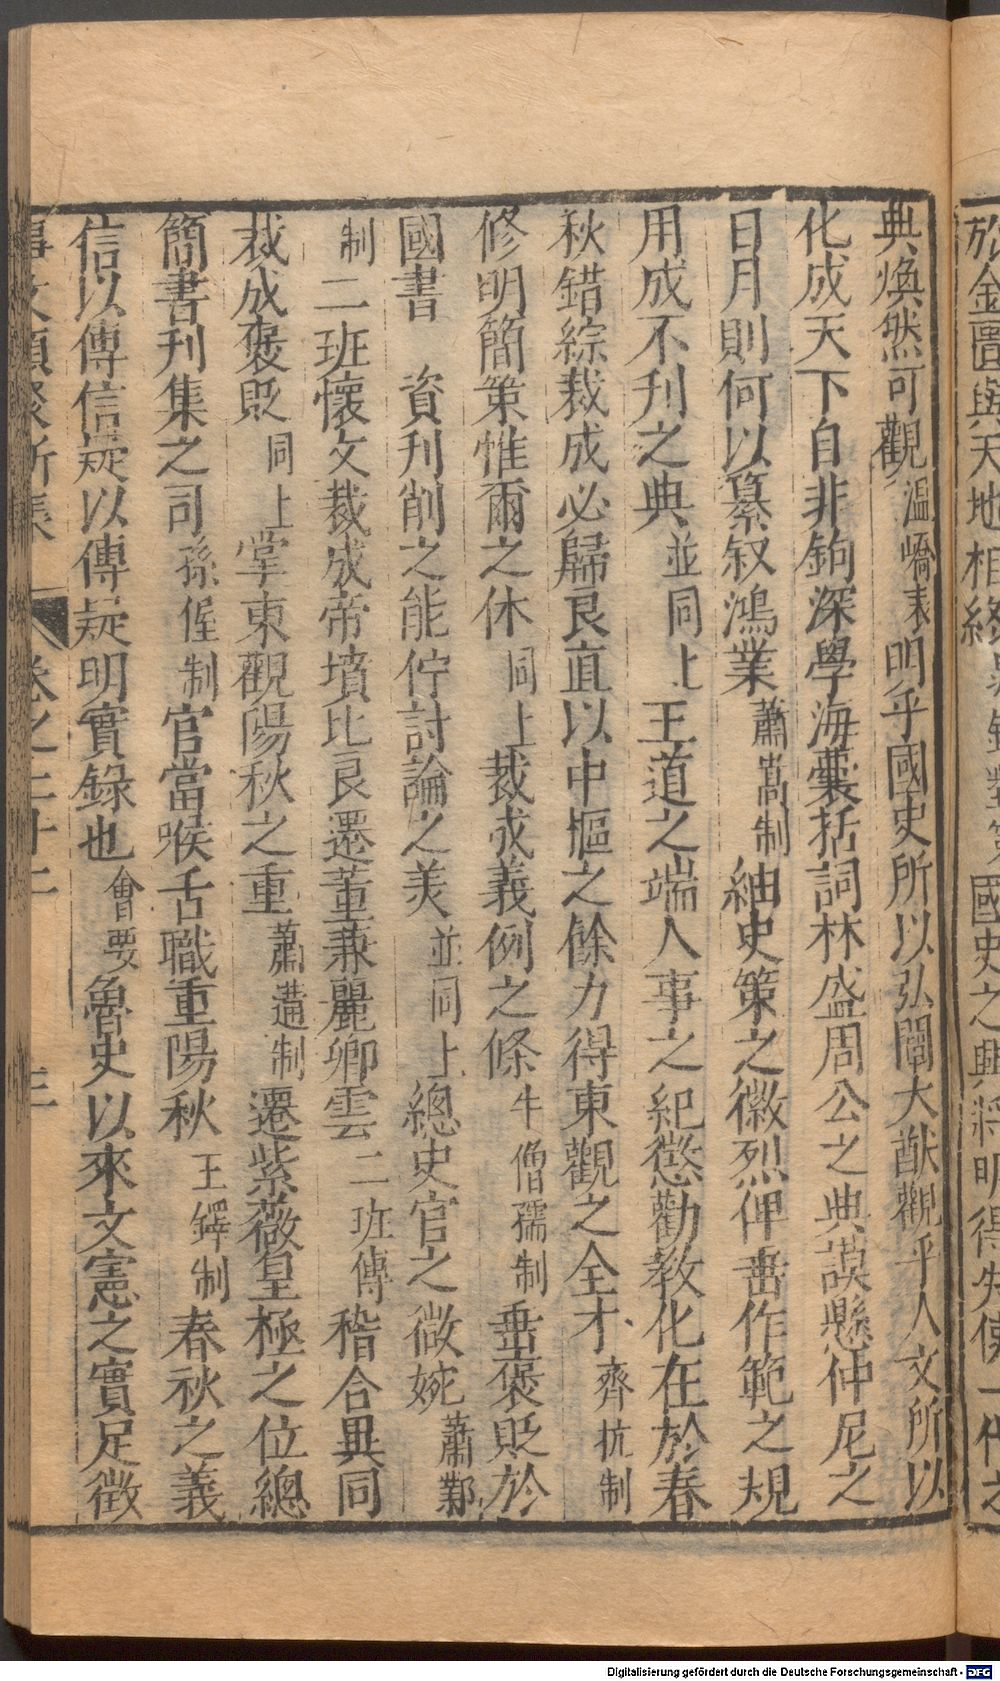 於金匱與天地相終 國史之興將明得失使一代之
典煥然可觀溫嶠表明乎國史所以弘闡大猷觀乎人文所以
化成天下自非鉤深學海囊括詞林盛周公之典謨懸仲尼之
日月則何以纂叙鴻業蕭嵩制紬史策之徽烈俾垂作範之規
用成不刊之典並同上王道之端人事之紀懲勸教化在於春
秋錯綜裁成必歸良直以中樞之餘力得東觀之全才齊抗制
修明簡策惟爾之休同上裁成義例之條牛僧孺制垂褒貶於
國書 資刊削之能佇討論之美並同上總史官之微婉蕭鄴
制二班懷文裁成帝墳比良遷董兼麗卿雲二班傳稽合異同
裁成褒貶同上掌東觀陽秋之重蕭遘制遷紫薇皇極之位總
簡書刊集之司孫偓制官當喉舌職重陽秋王鐸制春秋之義
信以傳信疑以傳疑明實錄也會要魯史以來文憲之實足徵
卷之二十二 三
Digitalisierung gefördert durch die Deutsche Forschungsgemeinschaft - DFG